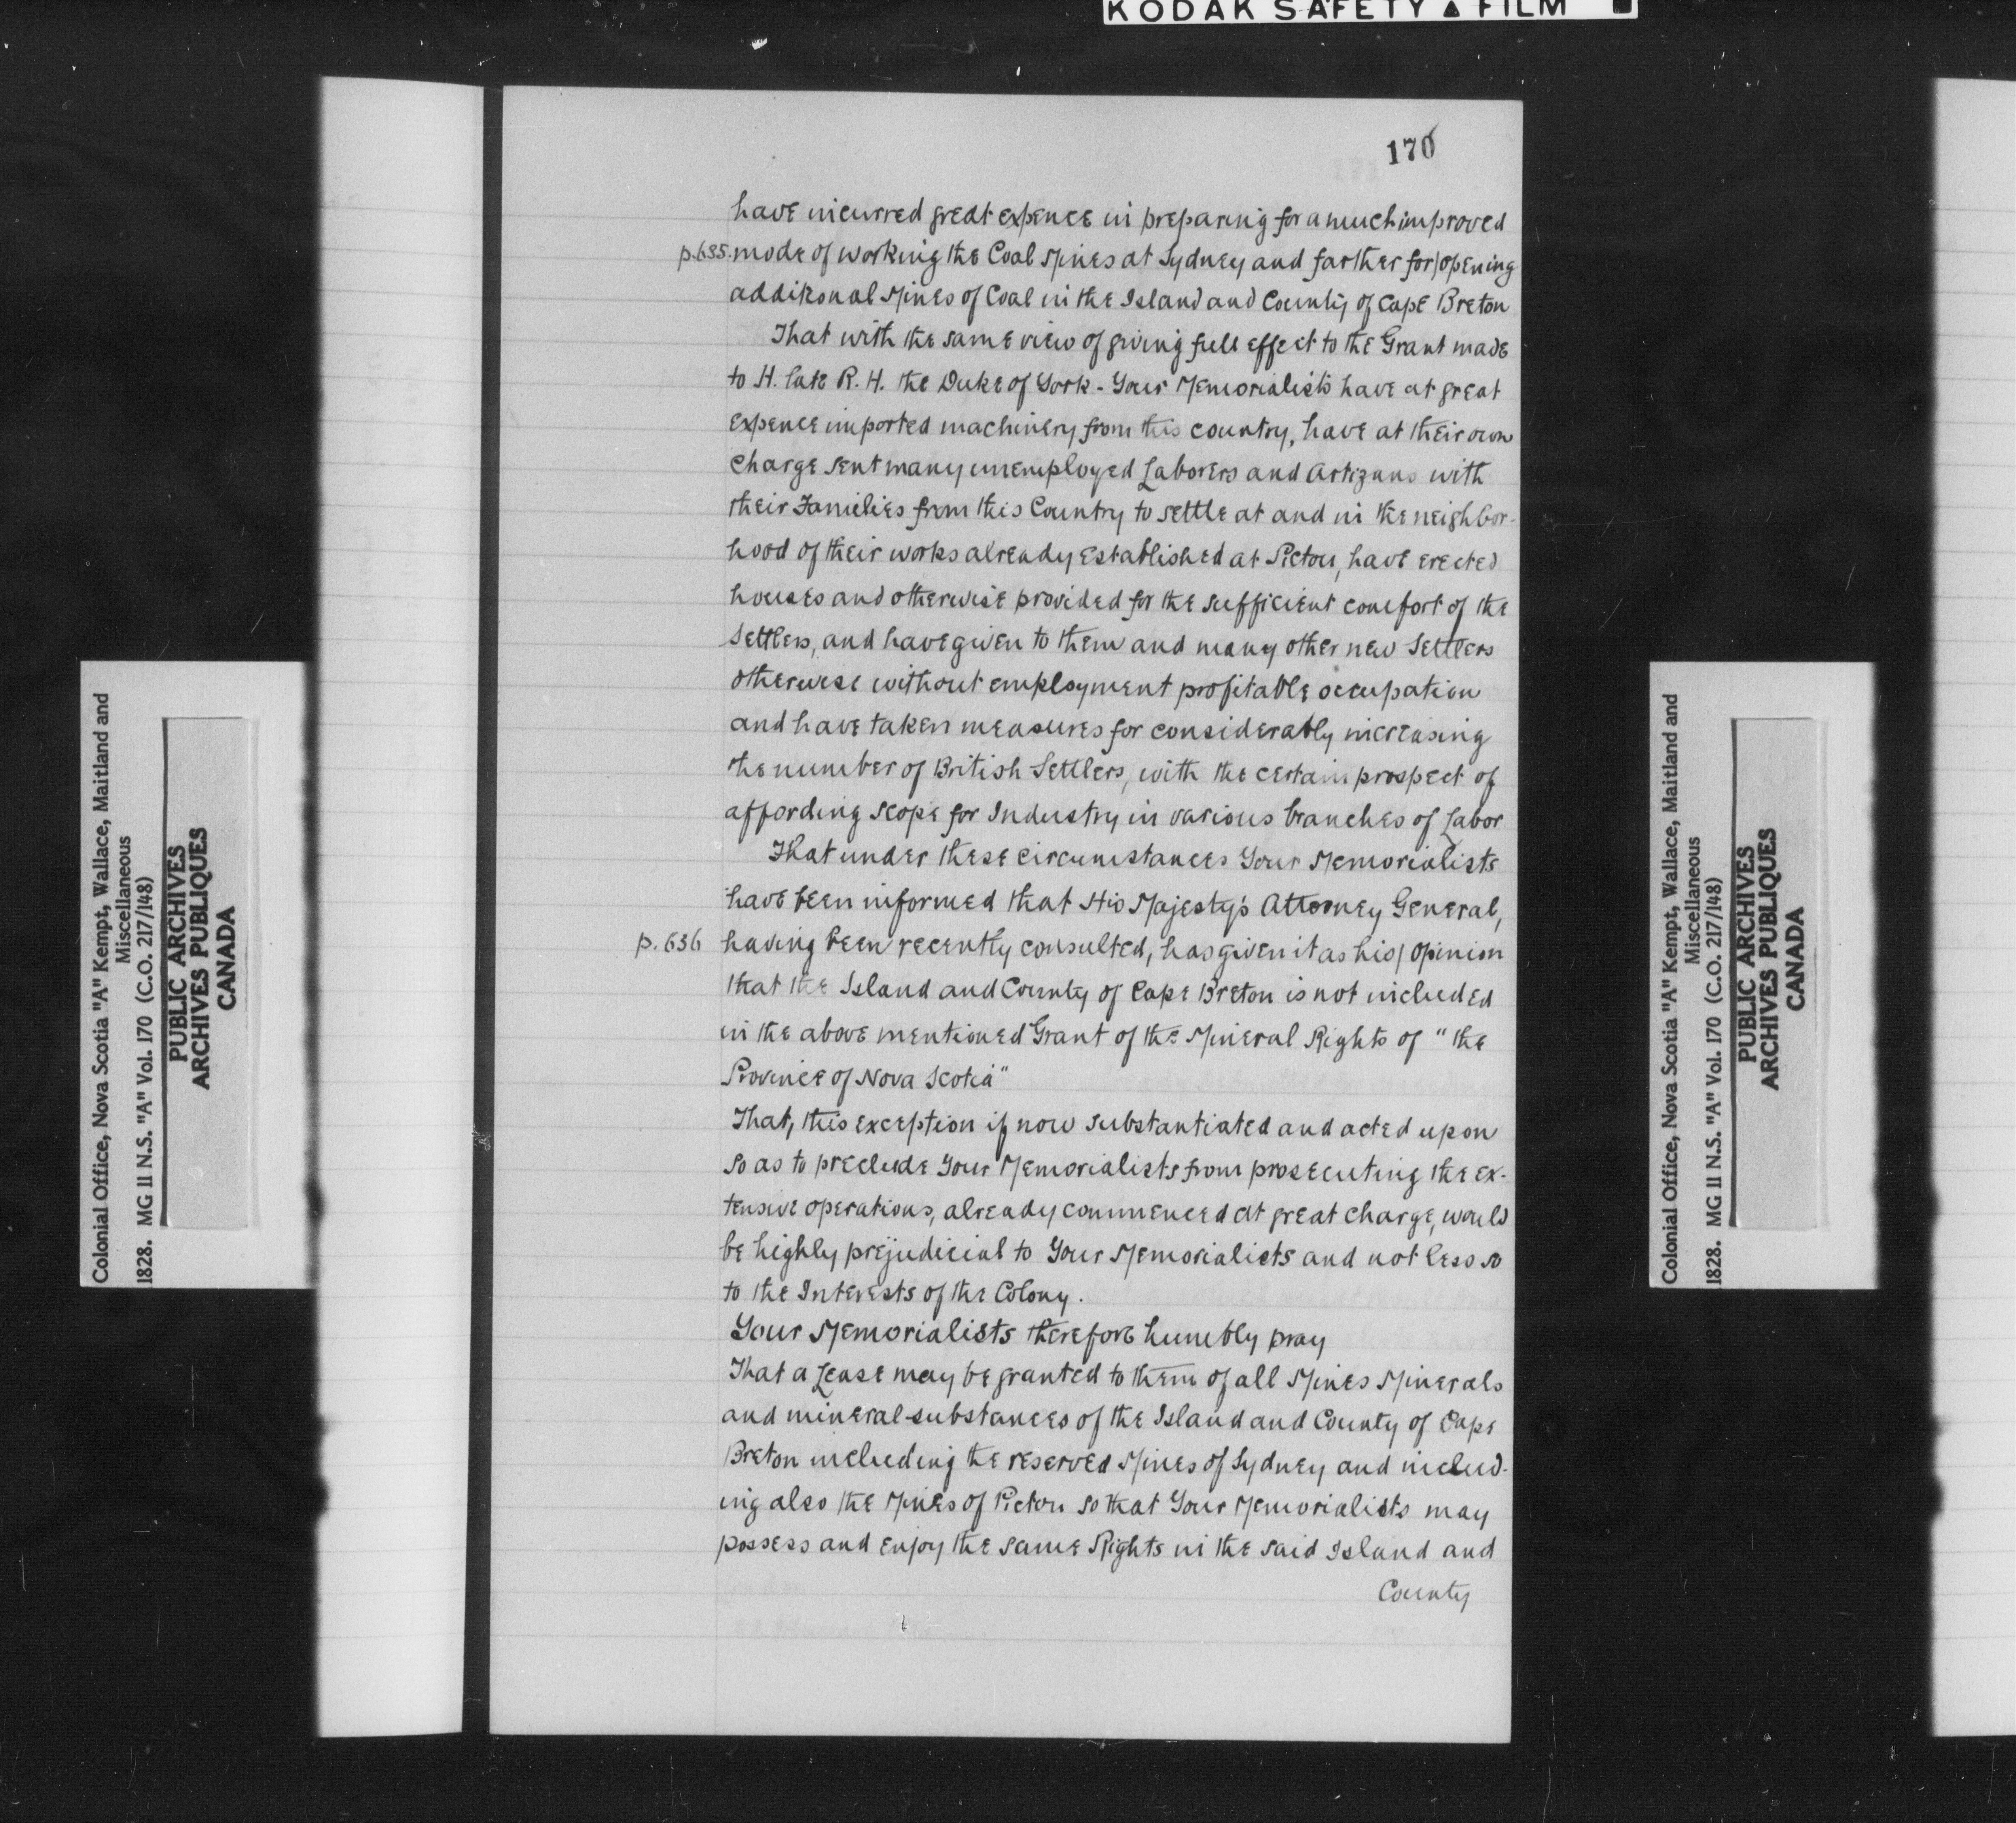 KODAK SAFETY ▲ FILM
170
have incurred great expence in preparing for a much improved
p.635. mode of working the Coal Mines at Sydney and farther for/opening
additional Mines of Coal in the Island and County of Cape Breton
That with the same view of giving full effect to the Grant made
to H. late R. H. the Duke of York - Your Memorialists have at great
expence imported machinery from this country, have at their own
charge sent many unemployed Laborers and Artizans with
their Families from this Country to settle at and in the neighbor-
hood of their works already established at Pictou, have erected
houses and otherwise provided for the sufficient comfort of the
Settlers, and have given to them and many other new Settlers
otherwise without employment profitable occupation
and have taken measures for considerably increasing
the number of British Settlers, with the certain prospect of
affording scope for Industry in various branches of Labor
That under these circumstances Your Memorialists
have been informed that His Majesty's Attorney General,
p. 636 having been recently consulted, has given it as his/opinion
that the Island and County of Cape Breton is not included
in the above mentioned Grant of the Mineral Rights of "the
Province of Nova Scotia"
That, this exception if now substantiated and acted upon
so as to preclude Your Memorialists from prosecuting the ex-
tensive operations, already commenced at great charge, would
be highly prejudicial to Your Memorialists and not less so
to the Interests of the Colony.
Your Memorialists therefore humbly pray
That a Lease may be granted to them of all Mines Minerals
and mineral substances of the Island and County of Cape
Breton including the reserved Mines of Sydney and includ-
ing also the Mines of Pictou so that Your Memorialists may
possess and enjoy the same Rights in the said Island and
County
Colonial Office, Nova Scotia "A" Kempt, Wallace, Maitland and
Miscellaneous
1828. MG 11 N.S. "A" Vol. 170 (C.O. 217/148)
PUBLIC ARCHIVES
ARCHIVES PUBLIQUES
CANADA
Colonial Office, Nova Scotia "A" Kempt, Wallace, Maitland and
Miscellaneous
1828. MG 11 N.S. "A" Vol. 170 (C.O. 217/148)
PUBLIC ARCHIVES
ARCHIVES PUBLIQUES
CANADA